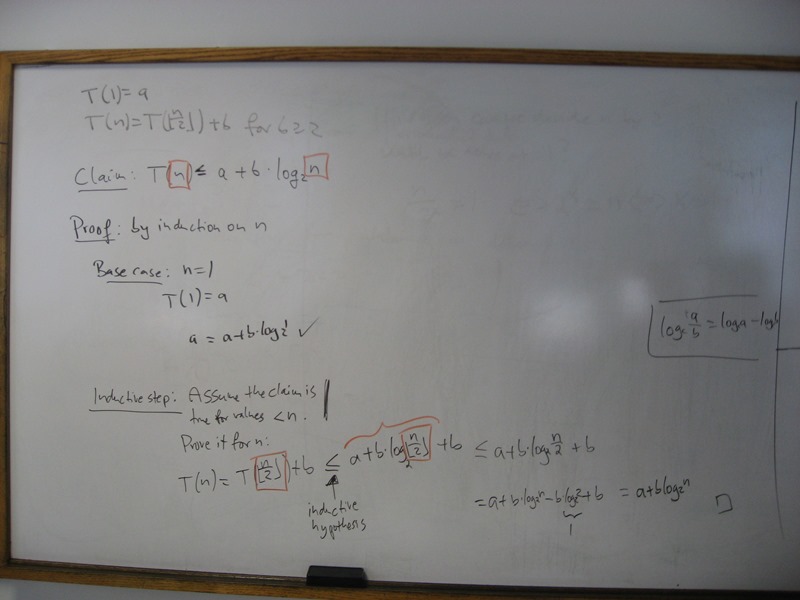 T(1)=a
T(n)=T(⌊n/2⌋)+b for b≥2
Claim: T(n) ≤ a + b · log₂ n
Proof: by induction on n
Base case: n=1
T(1)=a
a = a+b·log₂1 ✓
log₂ a/b = log a - log b
Inductive step: Assume the claim is
true for values <n.
Prove it for n:
T(n) = T(⌊n/2⌋)+b ≤ a+b·log₂⌊n/2⌋+b ≤ a+b·log₂ n/2 + b
inductive
hypothesis
= a+b·log₂n - b·log₂2 + b = a+b log₂n □
1